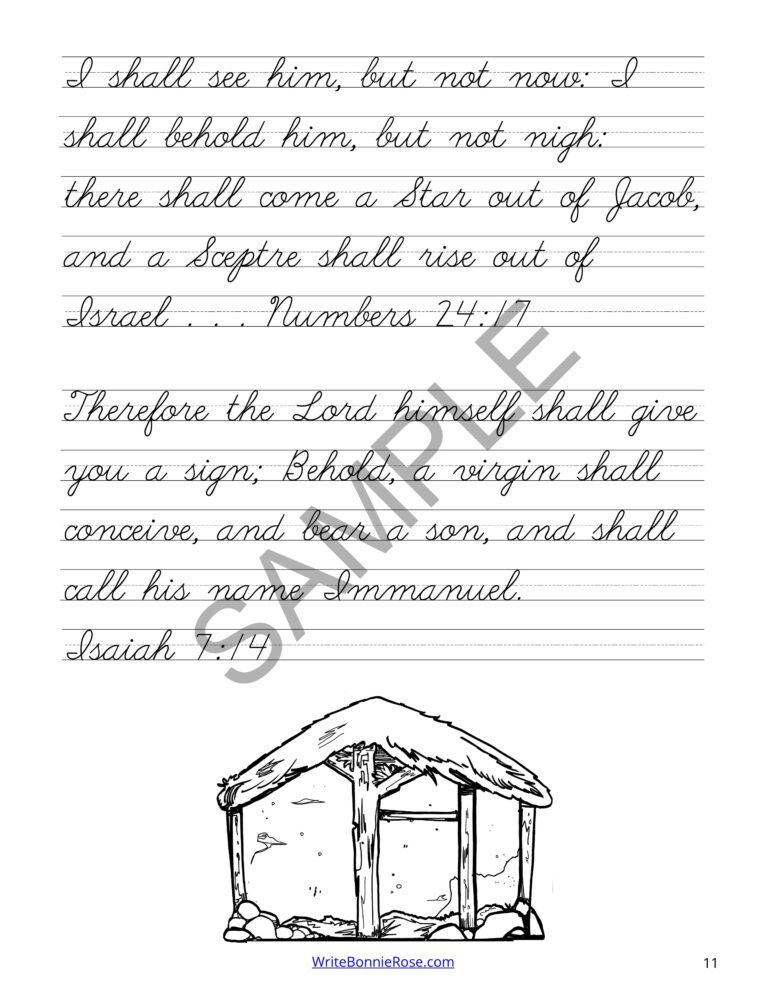 I shall see him, but not now: I
shall behold him, but not nigh:
there shall come a Star out of Jacob,
and a Sceptre shall rise out of
Israel . . . Numbers 24:17
Therefore the Lord himself shall give
you a sign; Behold, a virgin shall
conceive, and bear a son, and shall
call his name Immanuel.
Isaiah 7:14
SAMPLE
WriteBonnieRose.com
11